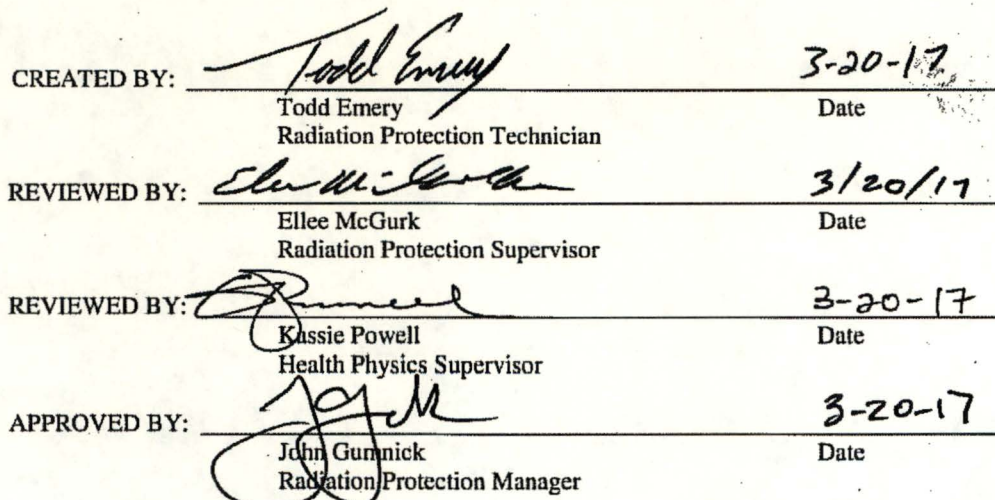 CREATED BY: Todd Emery 3-20-17
Todd Emery Date
Radiation Protection Technician
REVIEWED BY: 3/20/17
Ellee McGurk Date
Radiation Protection Supervisor
REVIEWED BY: 3-20-17
Kassie Powell Date
Health Physics Supervisor
APPROVED BY: 3-20-17
John Gumnick Date
Radiation Protection Manager